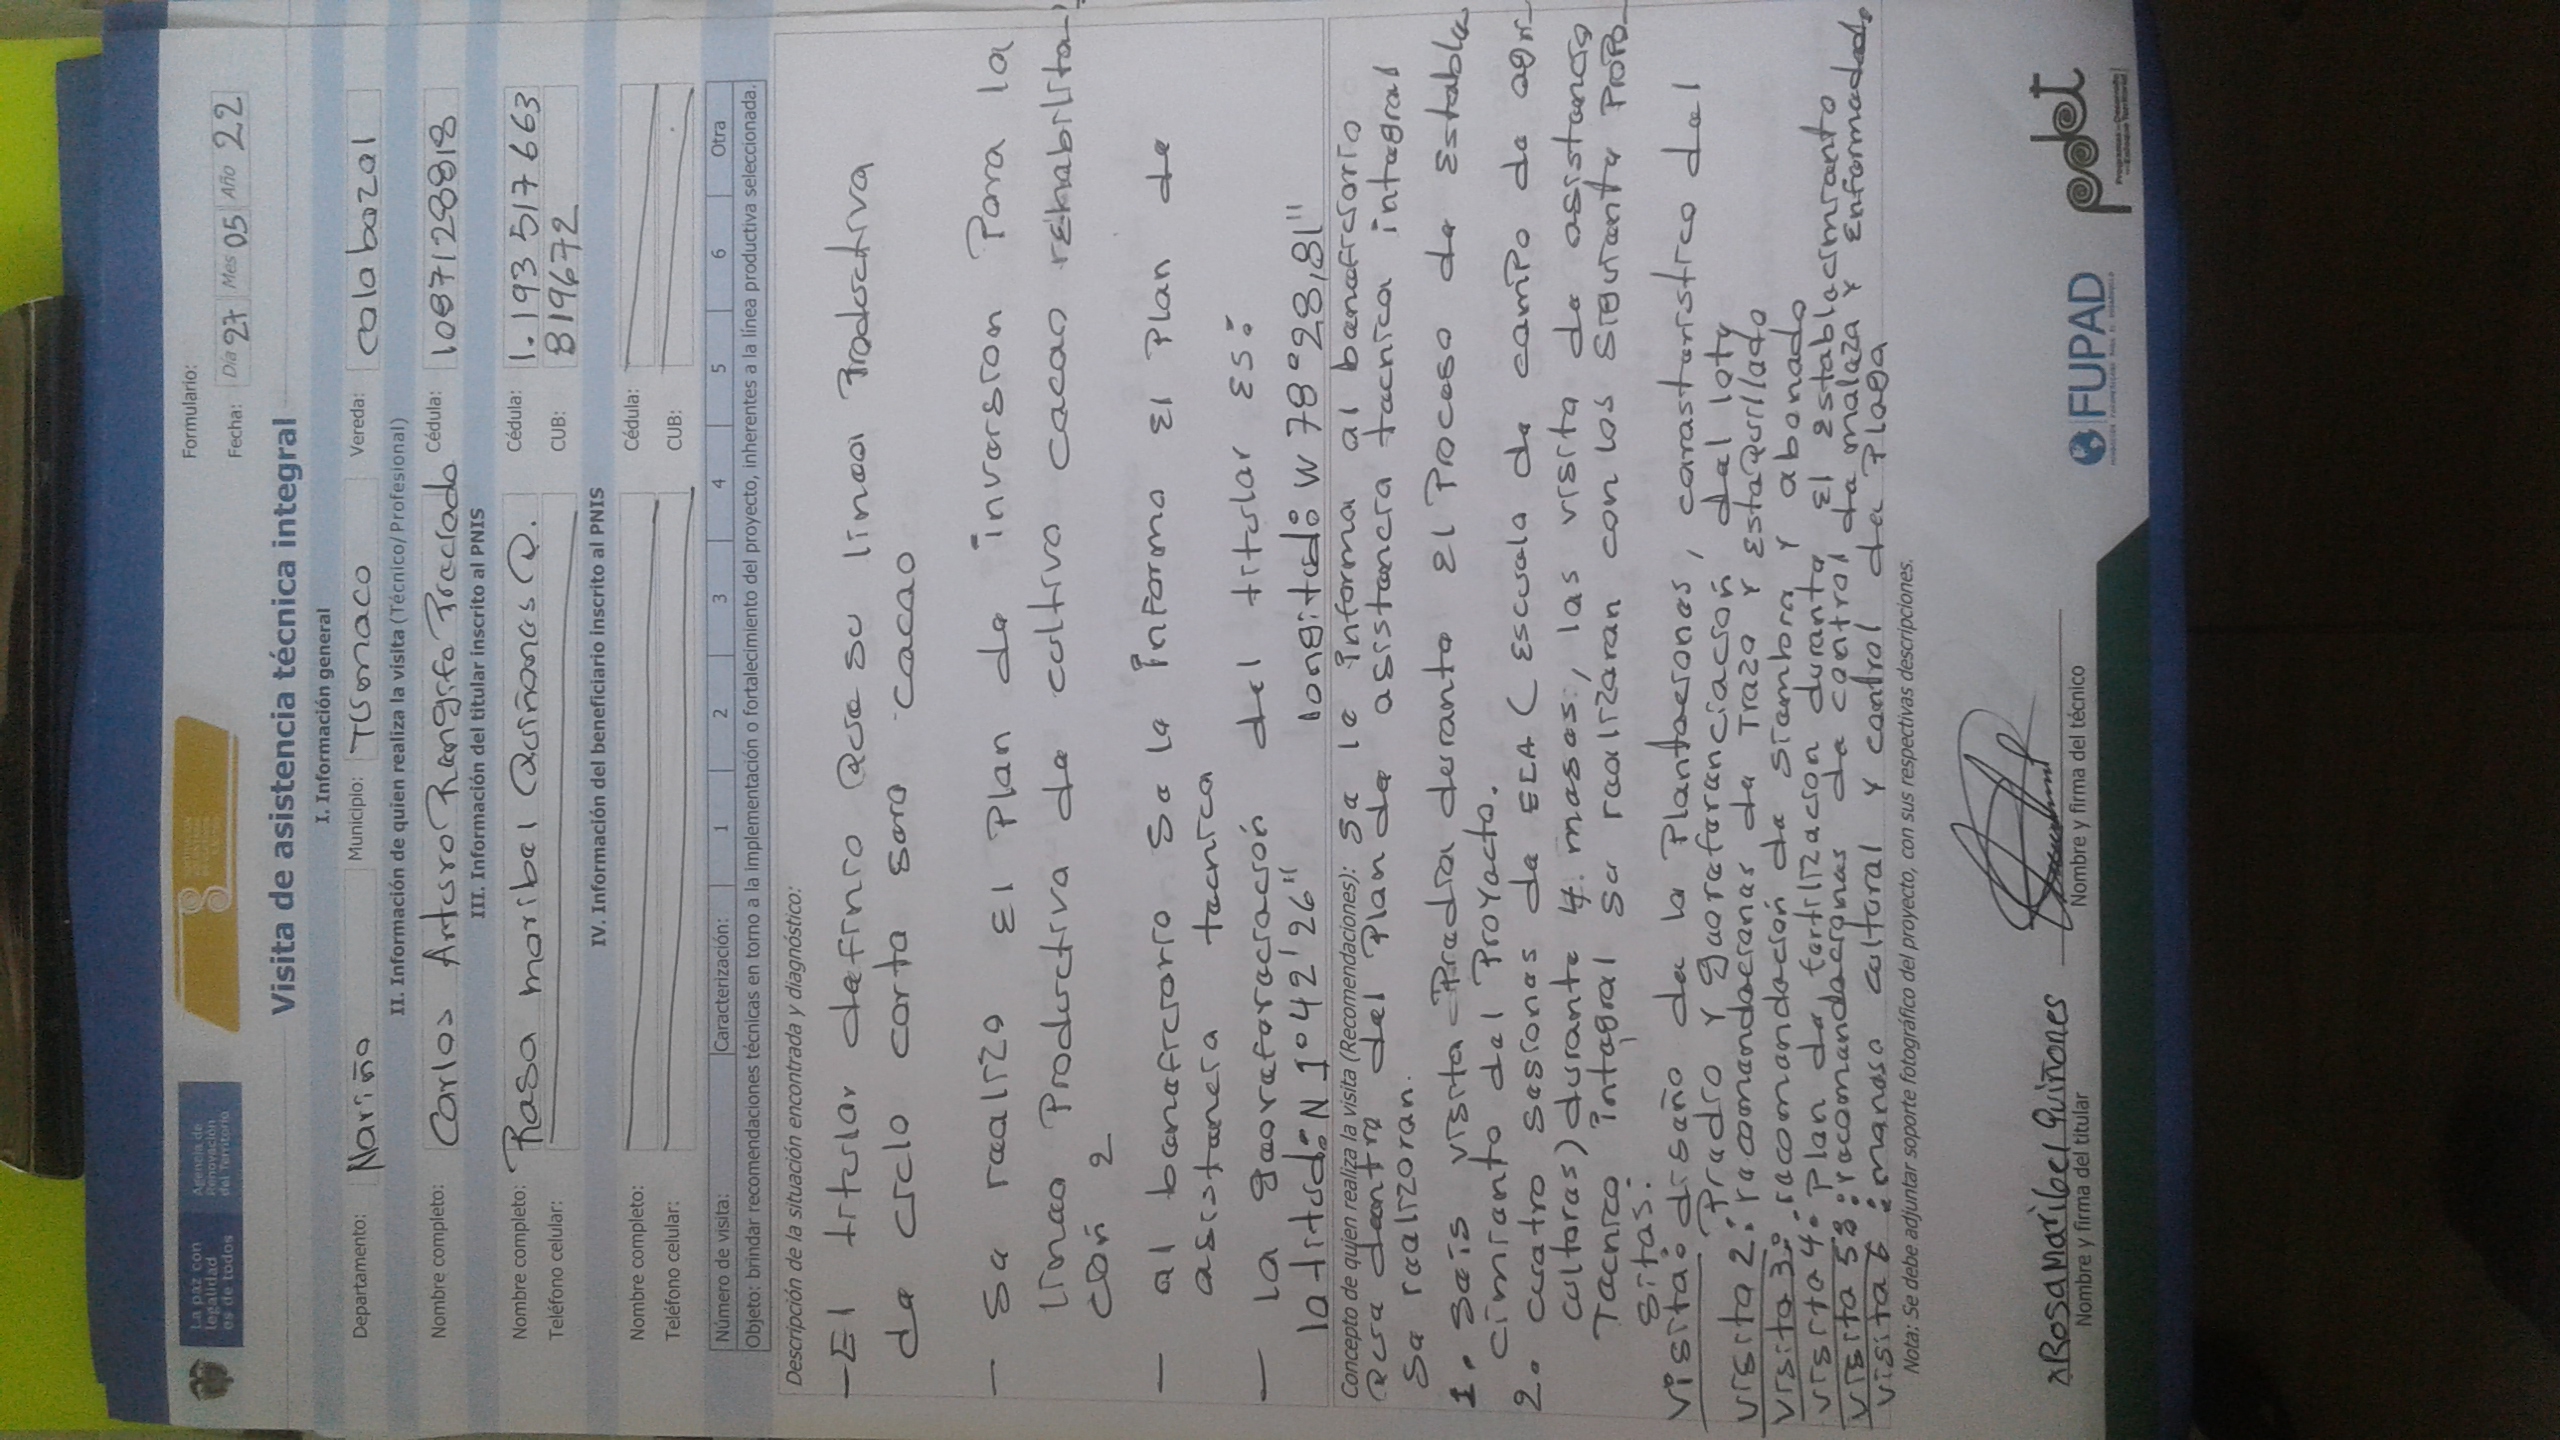 La paz con
legalidad
es de todos
Agencia de
Renovación
del Territorio
Formulario:
Fecha: Día 27 Mes 05 Año 22
Visita de asistencia técnica integral
I. Información general
Departamento: Nariño Municipio: Tumaco Vereda: calabazal
II. Información de quien realiza la visita (Técnico/ Profesional)
Nombre completo: Carlos Arturo Rengifo Preciado Cédula: 1087128818
III. Información del titular inscrito al PNIS
Nombre completo: Rosa maribel Quiñones Q. Cédula: 1.193 517 663
Teléfono celular: CUB: 819672
IV. Información del beneficiario inscrito al PNIS
Nombre completo: Cédula:
Teléfono celular: CUB:
Número de visita: Caracterización: 1 2 3 4 5 6 Otra
Objeto: brindar recomendaciones técnicas en torno a la implementación o fortalecimiento del proyecto, inherentes a la línea productiva seleccionada.
Descripción de la situación encontrada y diagnóstico:
— El titular definio que su linea Productiva
de ciclo corto sera cacao
— Se realizo El Plan de inversion Para la
linea Productiva de cultivo cacao rehabilita-
ción 2
— al beneficiario se la informo El Plan de
asistencia tecnica
— la georeferaciación del titular ES:
latitud: N 1°42'26" longitud: W 78°28,81"
Concepto de quien realiza la visita (Recomendaciones): se le informa al beneficiario
que dentro del Plan de asistencia tecnica integral
se realizaran.
1. seis visita Predio durante El Proceso de Estable
cimiento del Proyecto.
2. cuatro sesiones de ECA ( Escuela de campo de agri_
cultores) durante 4 meses, las visita de asistencia
Tecnico integral se realizaran con los siguiente Propo_
sitos:
Visita: diseño de la Plantaciones, caracteristico del
Predio y georeferenciación, del lote
visita 2: recomendaciones de Trazo y Estaquillado
visita 3: recomendación de siembra y abonado
visita 4: Plan de fertilizacion durante El Establecimiento
visita 5: recomendaciones de control de maleza y Enformedade
visita 6: manejo cultural y control de Plaga
Nota: Se debe adjuntar soporte fotográfico del proyecto, con sus respectivas descripciones.
x Rosa Maribel Quiñones
Nombre y firma del titular
Nombre y firma del técnico
FUPAD
pdet
Programas de Desarrollo
con Enfoque Territorial